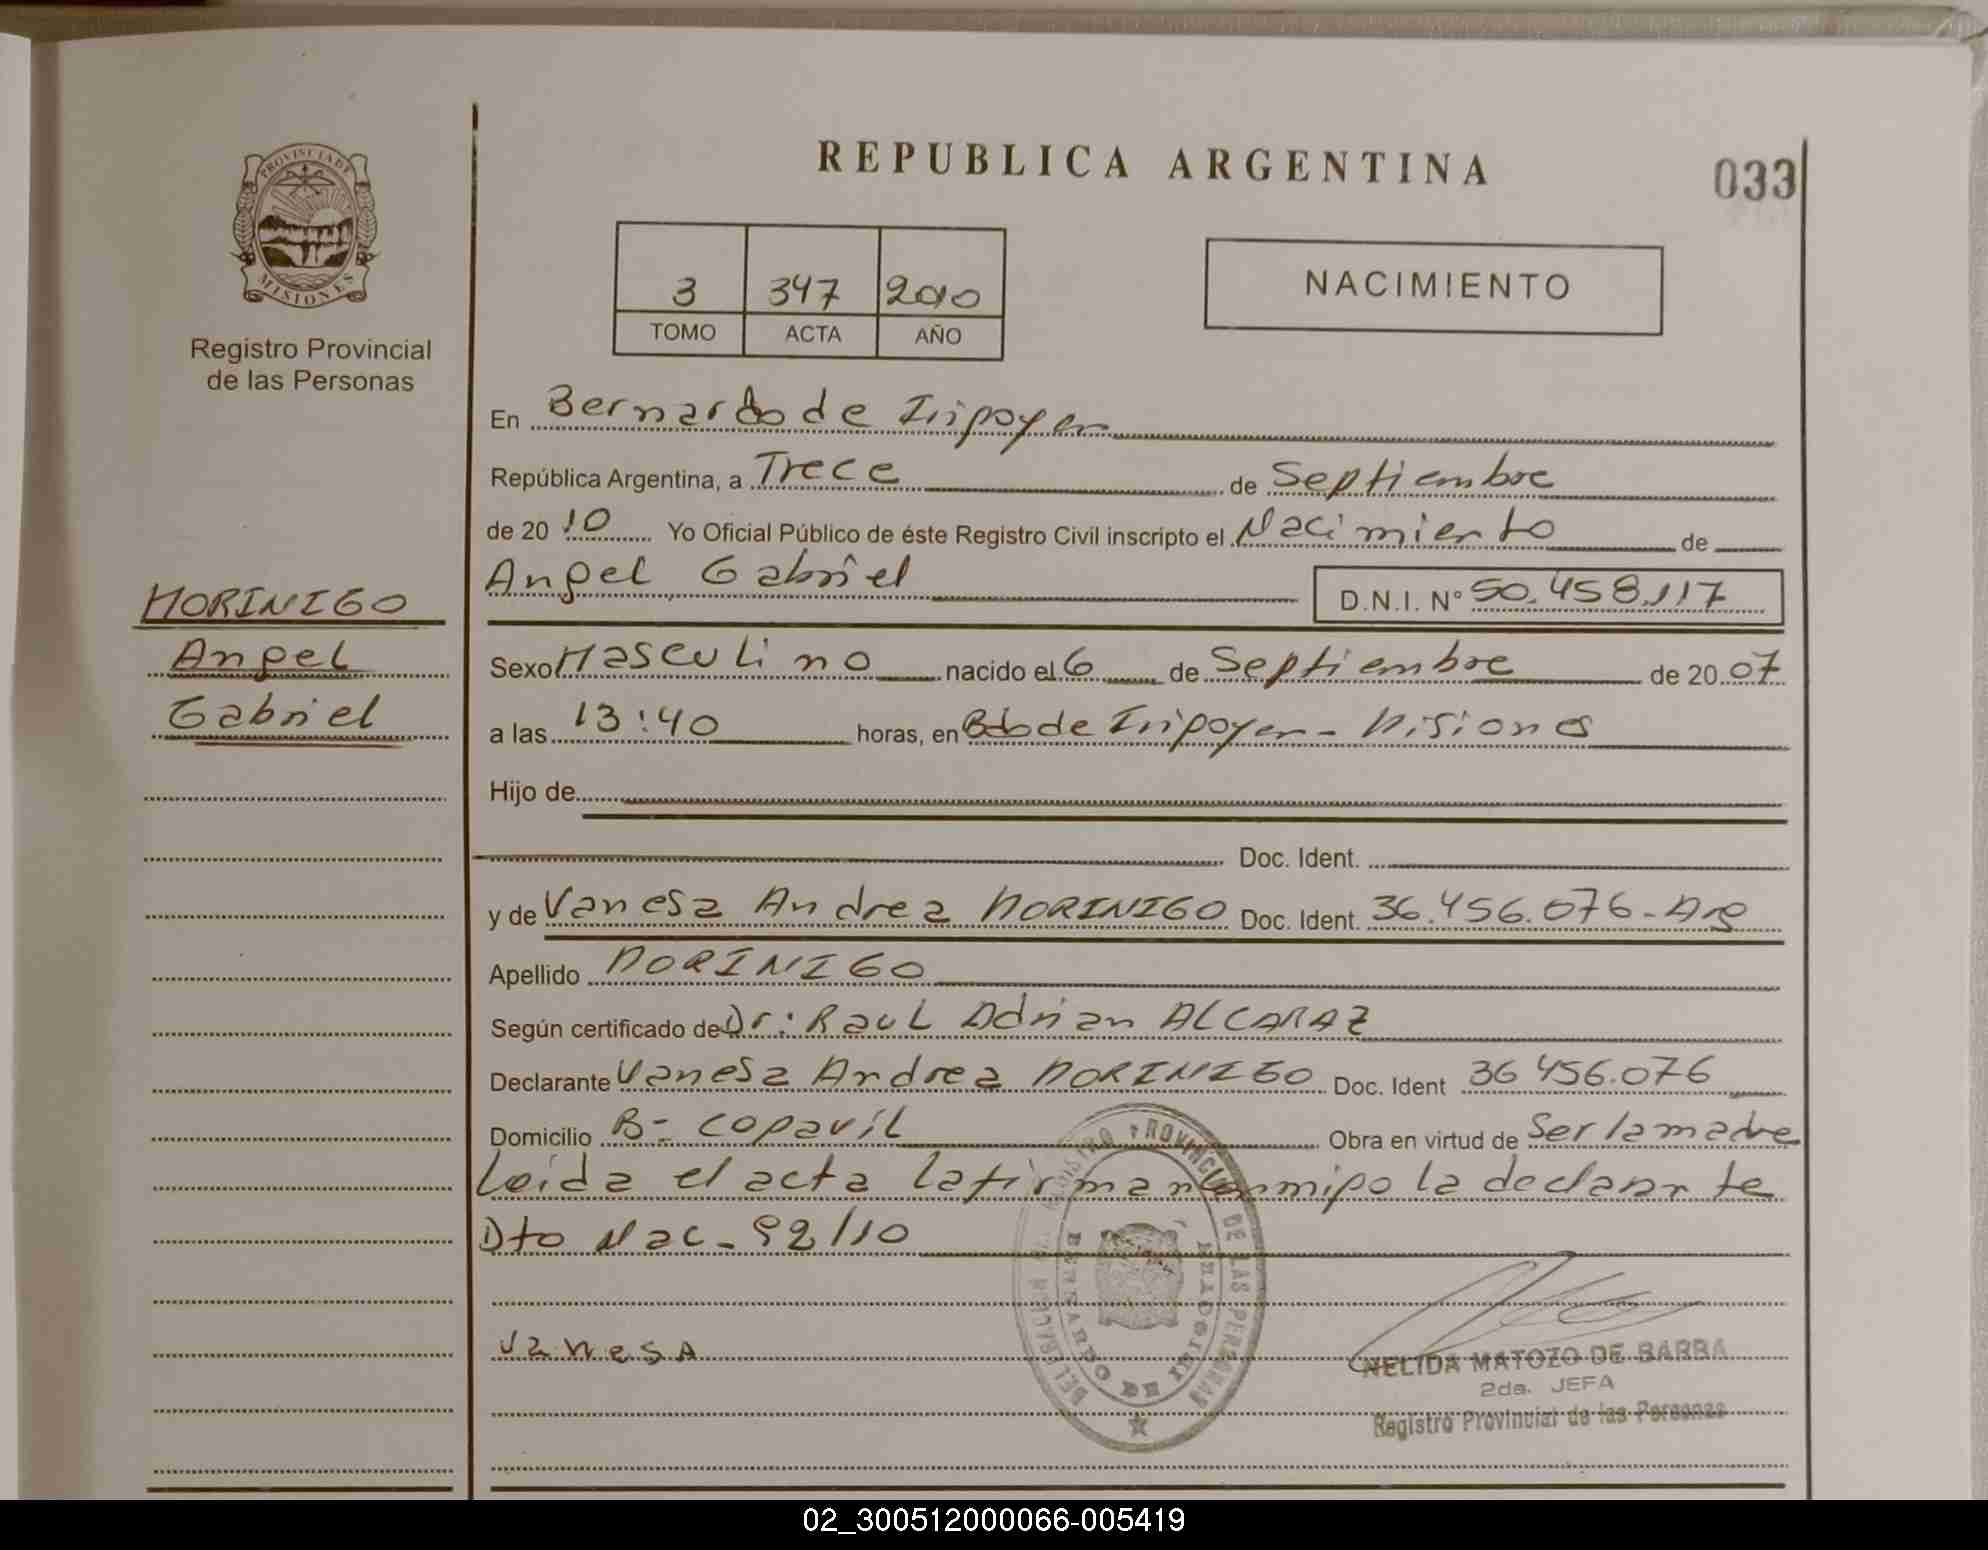 REPUBLICA ARGENTINA
033
PROVINCIA DE
MISIONES
Registro Provincial
de las Personas
3 347 2010
TOMO ACTA AÑO
NACIMIENTO
En Bernardo de Iripoyen
República Argentina, a Trece de Septiembre
de 20 10 Yo Oficial Público de éste Registro Civil inscripto el Nacimiento de
Angel Gabriel D.N.I. N° 50.458.117
MORINIGO
Angel
Gabriel
Sexo Masculino nacido el 6 de Septiembre de 20 07
a las 13:40 horas, en Bdo de Iripoyen - Misiones
Hijo de
Doc. Ident.
y de Vanesa Andrea MORINIGO Doc. Ident. 36.456.076 - Arg
Apellido MORINIGO
Según certificado de Dr: Raul Adrian ALCARAZ
Declarante Vanesa Andrea MORINIGO Doc. Ident 36 456.076
Domicilio B- Copavil Obra en virtud de Ser la madre
Leida el acta la firman conmigo la declarante
Dto Nac - 92/10
REGISTRO PROVINCIAL DE LAS PERSONAS
BERNARDO DE IRIGOYEN
vanesA
NELIDA MATOZO DE BARRA
2da. JEFA
Registro Provincial de las Personas
02_300512000066-005419